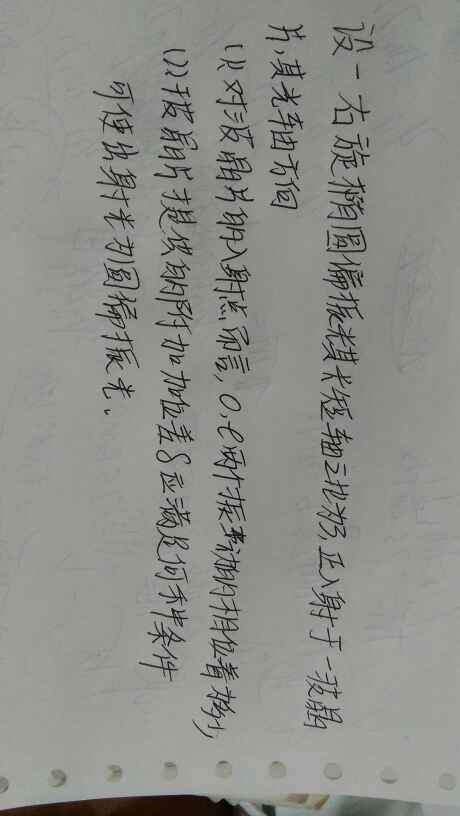 设一右旋椭圆偏振光其长短轴之比为, 正入射于一波晶
片, 其光轴方向
(1) 对波晶片的入射点而言, o.e两个振动的相位差为多少,
(2) 波晶片提供的附加相位差δ应满足何种条件
可使出射光为圆偏振光.